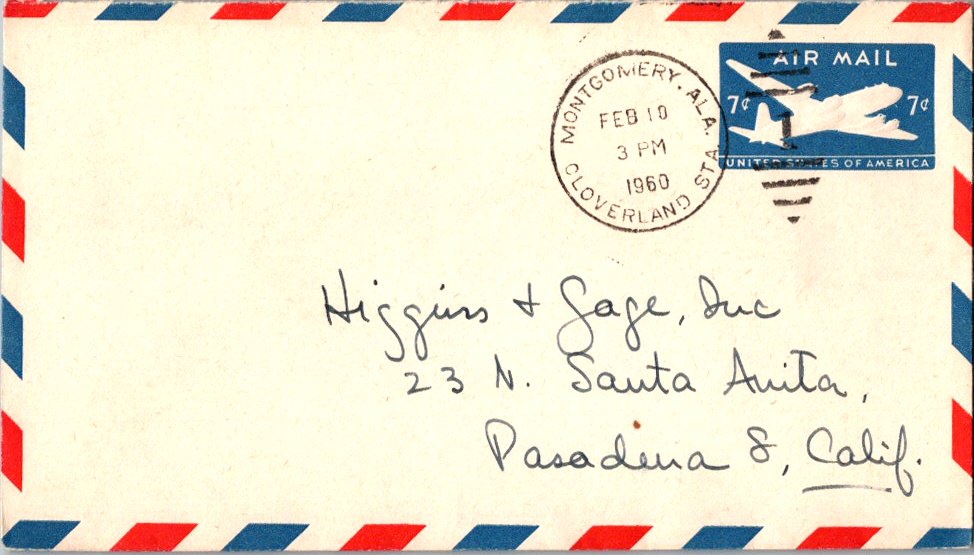 AIR MAIL
7¢ 7¢
UNITED STATES OF AMERICA
MONTGOMERY, ALA.
FEB 10
3 PM
1960
CLOVERLAND STA
1
Higgins + Gage, Inc
23 N. Santa Anita,
Pasadena 8, Calif.